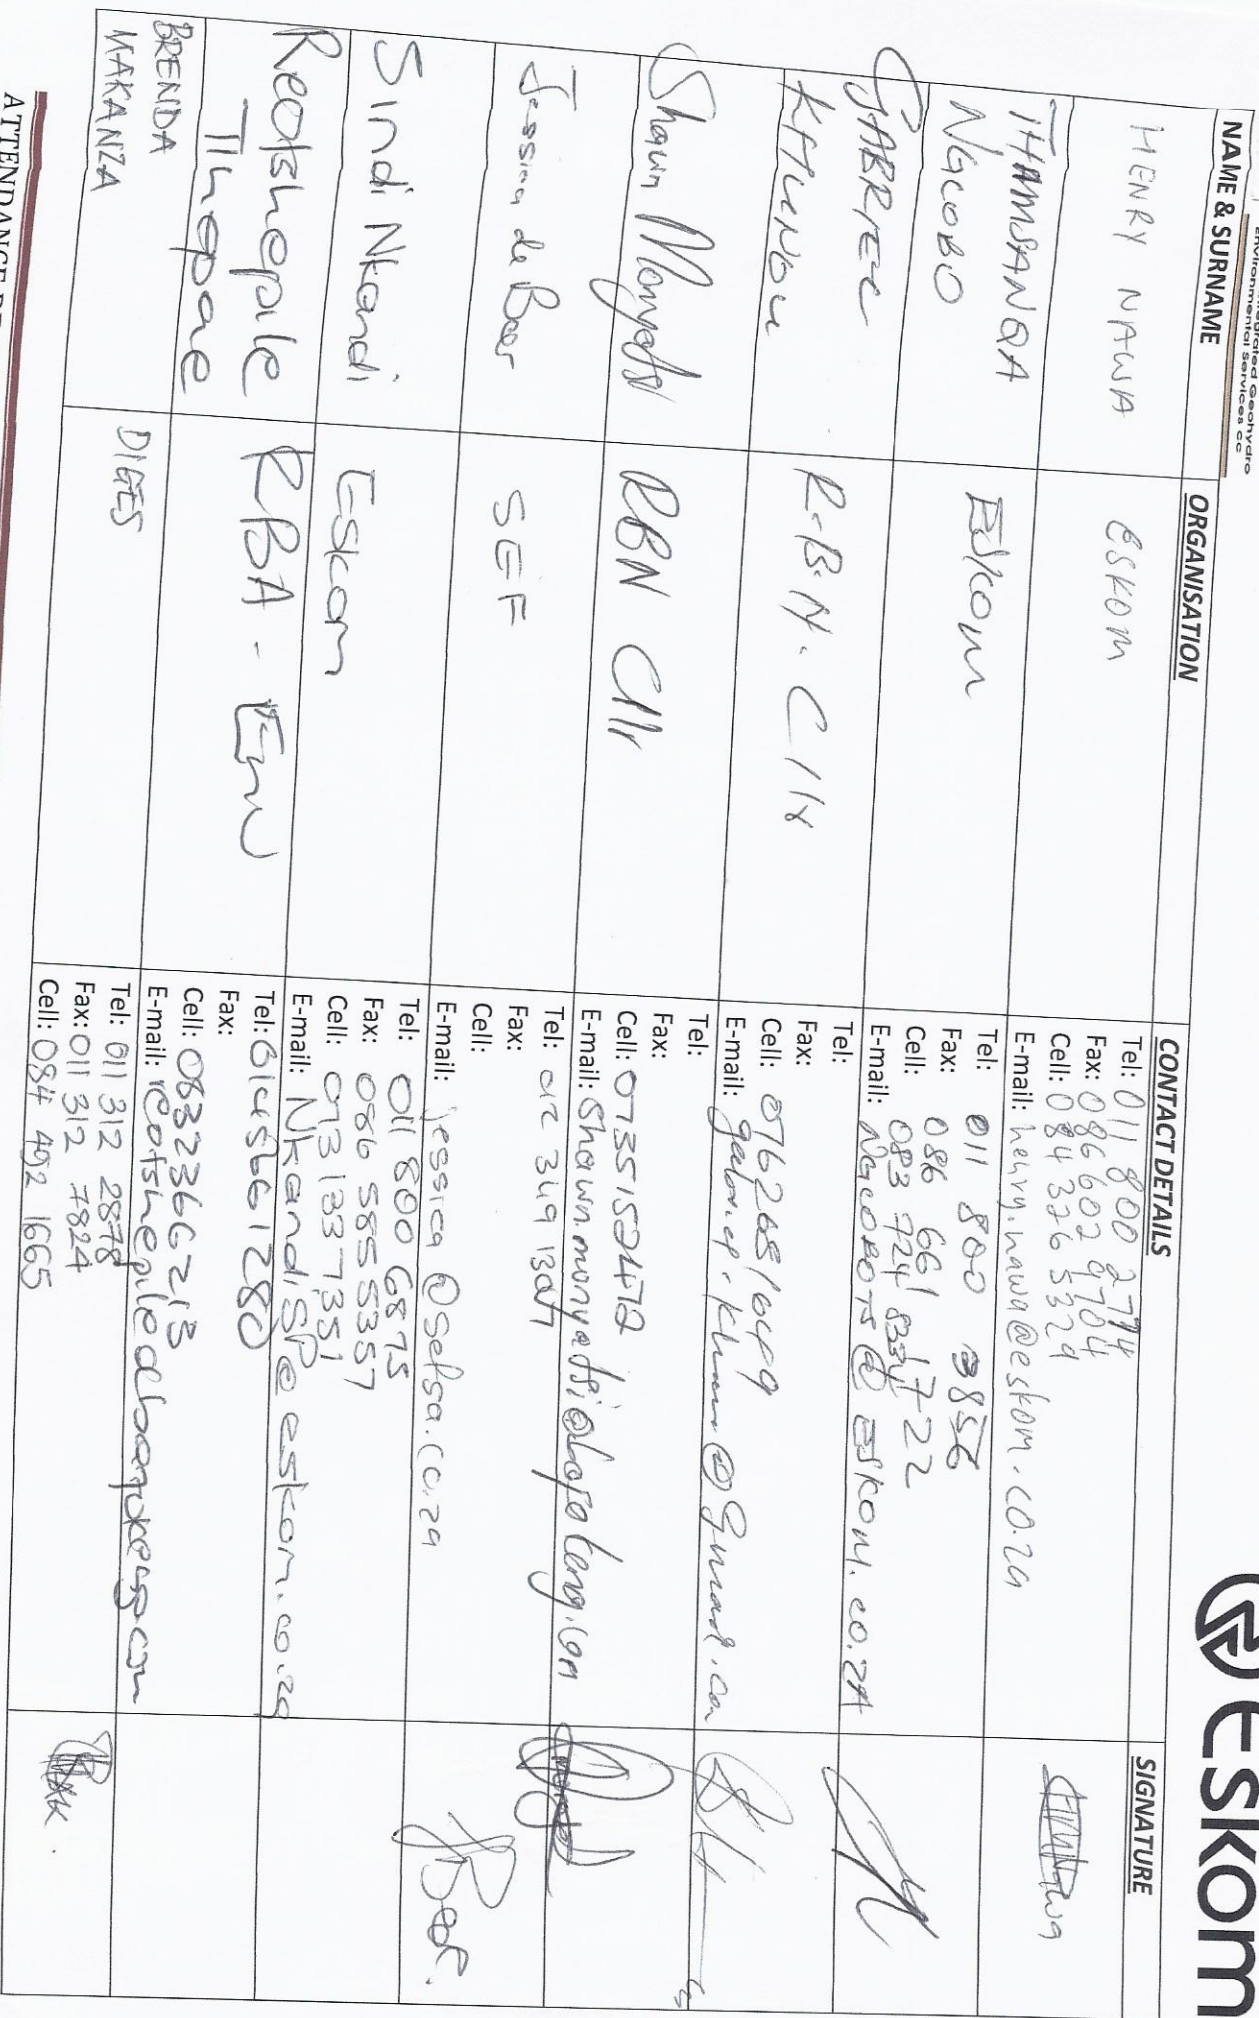 Integrated Geohydro
Environmental Services cc
eskom
NAME & SURNAME
ORGANISATION
CONTACT DETAILS
SIGNATURE
HENRY NAWA
ESKOM
Tel: 011 800 2774
Fax: 086 602 9704
Cell: 084 326 5329
E-mail: henry.nawa@eskom.co.za
THAMSANQA
NGCOBO
ESKOM
Tel: 011 800 3856
Fax: 086 661
Cell: 083 724
E-mail: NGCOBOTS@ESKOM.CO.ZA
GABRIEL
R.B.N. Cllr
Tel:
Fax:
Cell:
E-mail:
Shawn Monyatsi
RBN Cllr
Tel:
Fax:
Cell: 0735152472
E-mail: shawn.monyatsi@
Jessica de Beer
SEF
Tel: 012 349 1307
Fax:
Cell:
E-mail: jessica@sefsa.co.za
Sindi Nkandi
Eskom
Tel: 011 800 6875
Fax: 086 585 5357
Cell: 073 133 7351
E-mail: NkandiSP@eskom.co.za
Reotshepile
Tlhopane
RBA -
Tel: 0145661280
Fax:
Cell: 0832366213
E-mail:
BRENDA
MAKANZA
DIGES
Tel: 011 312 2878
Fax: 011 312 7824
Cell: 084 492 1665